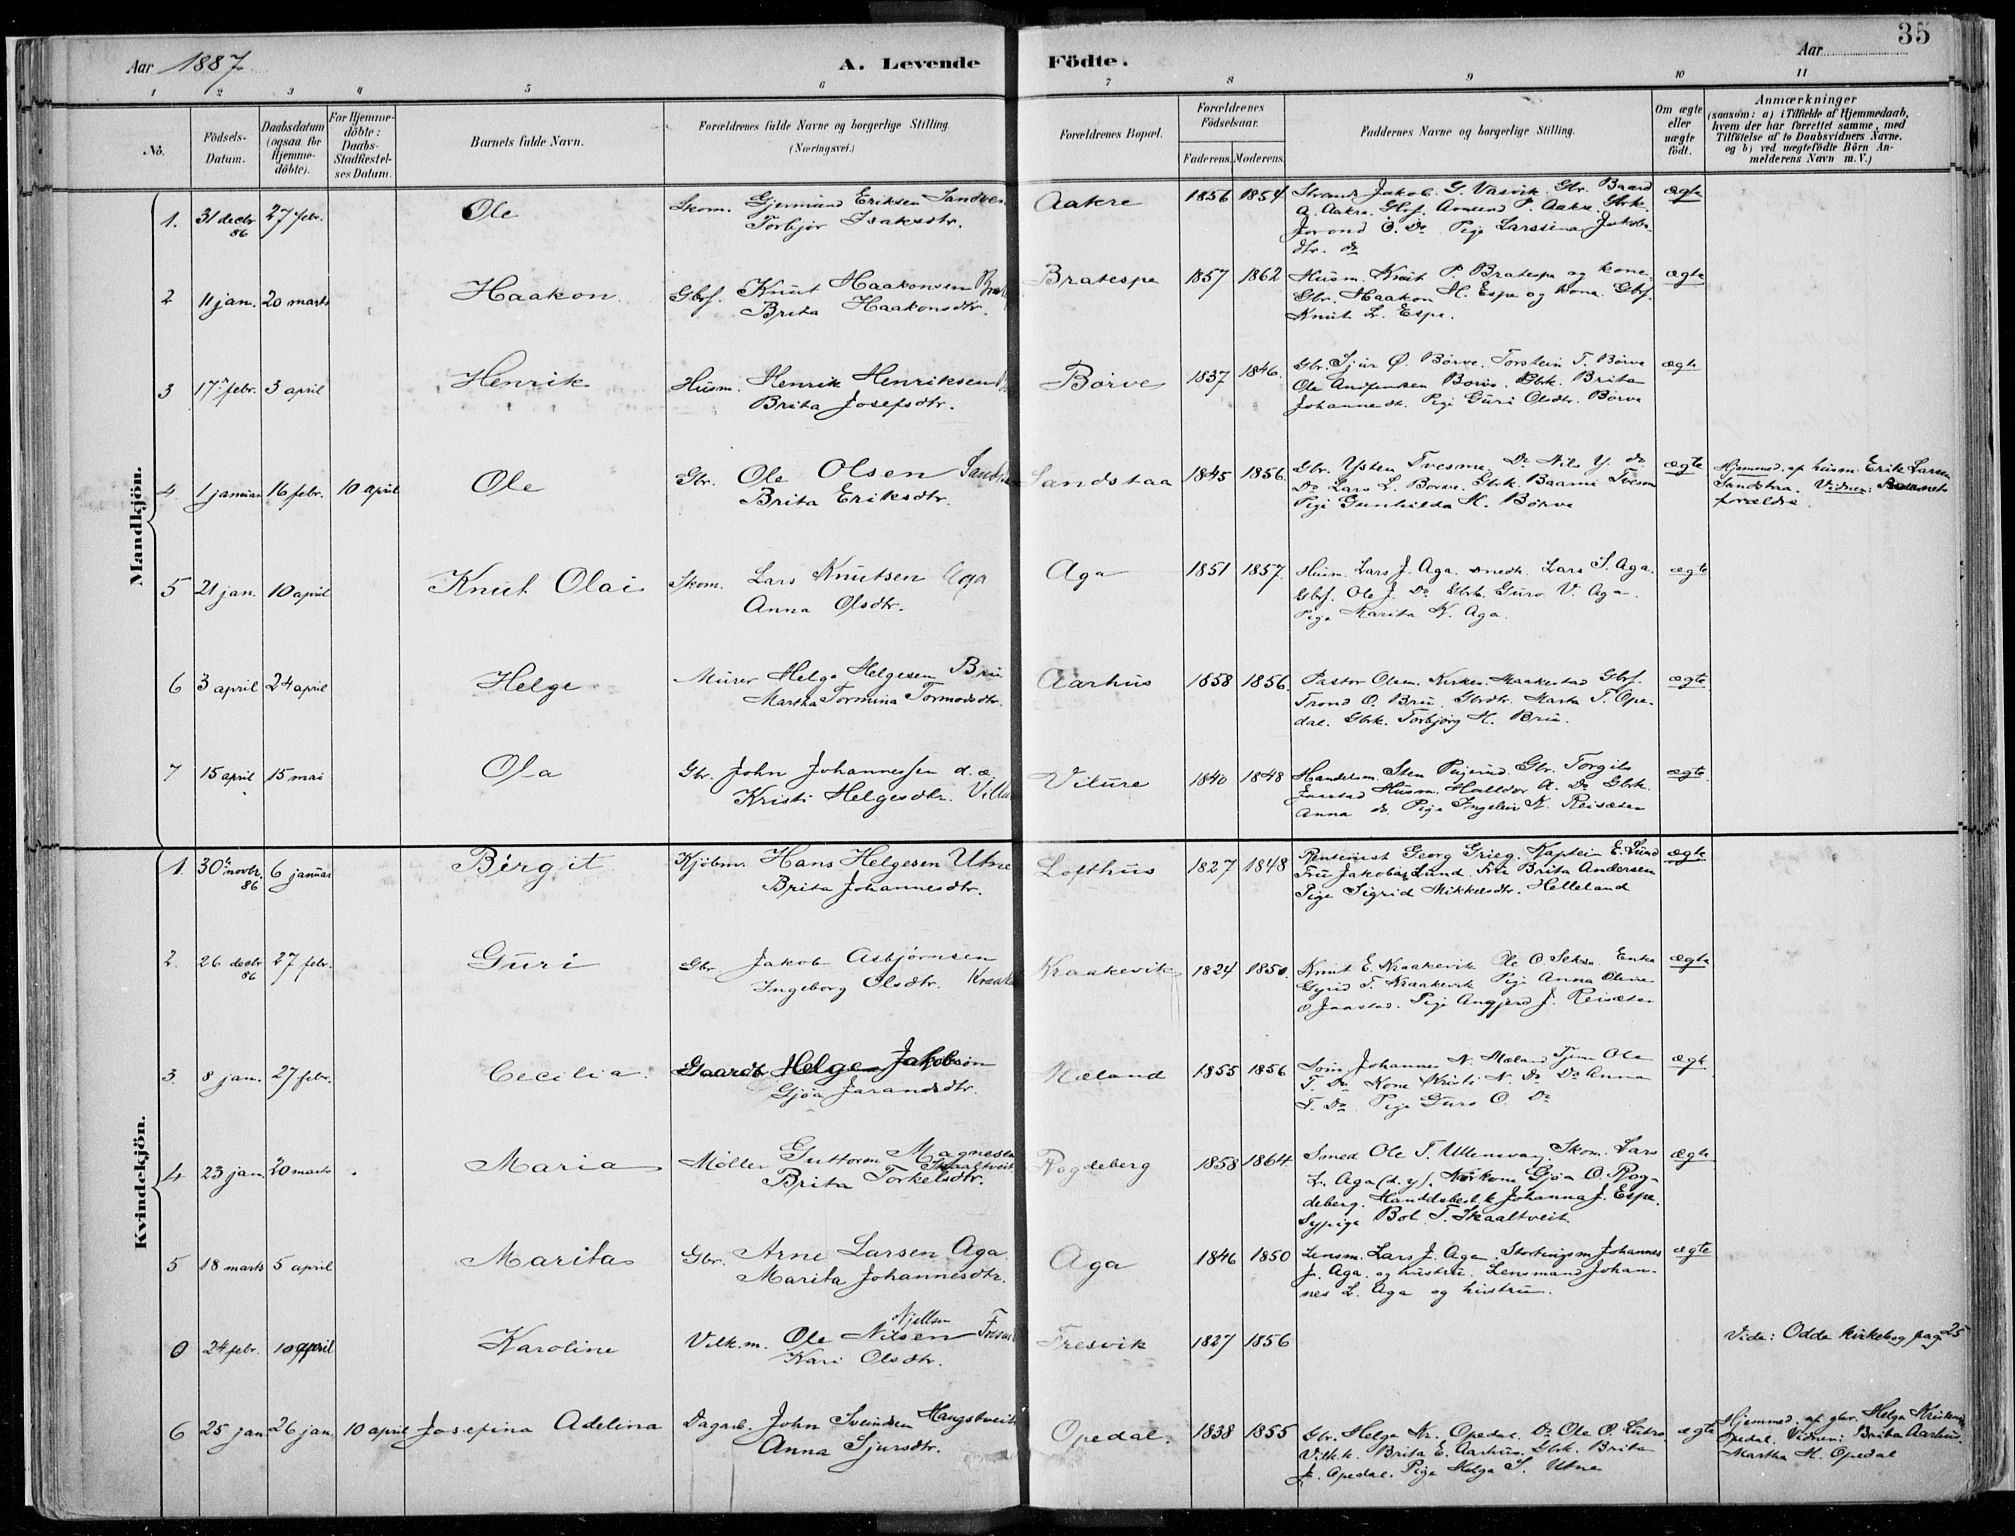 35
Aar 1887 A. Levende Födte. Aar
1 2 3 4 5 6 7 8 9 10 11
No.
Födsels-Datum.
Daabsdatum (ogsaa for Hjemme-döbte).
For Hjemme-döbte: Daabs-Stadfæstel-ses Datum.
Barnets fulde Navn.
Forældrenes fulde Navne og borgerlige Stilling.
(Næringsvei.)
Forældrenes Bopæl.
Forældrenes Födselsaar.
Faderens. Moderens.
Faddernes Navne og borgerlige Stilling.
Om ægte eller uægte födt.
Anmærkninger
(saasom: a) i Tilfælde af Hjemmedaab,
hvem der har forrettet samme, med
Tilföielse af to Daabsvidners Navne.
og b) ved uægtefödte Börn An-
melderens Navn m. V.)
Mandkjön.
1. 31 decbr 86 27 febr. Ole Skom. Gjermund Eriksen Sandven
Torbjør Isaksdtr.
Aakre 1856 1854 Jakob G. Vasvik. Gbr. Baard
A. Aakre. Amund P. Aakre. Gbrk.
O. Do Pige Larssina Jakobs-
dtr. do
ægte
2 11 jan. 20 marts Haakon Gbrf. Knut Haakonsen
Brita Haakonsdtr.
Bratespe 1857 1862 Husm. Knut P. Bratespe og kone.
Gbr. Haakon H. Espe og kone. Gbrf.
Knut L. Espe.
ægte
3 17 febr. 3 april Henrik Husm. Henrik Henriksen
Brita Josefsdtr.
Børve 1837 1846. Gbr. Sjur Ø. Børve. Torstein T. Børve
Ole Børve. Gbrk. Brita
Johannesdtr. Pige Guri Olsdtr. Børve
ægte
4 1 januar 16 febr. 10 april Ole Gbr. Ole Olsen
Brita Eriksdtr.
Sandstaa 1845 1856. Gbr. Ysten Tvesme. Do Nils Y. do
Do Lars L. Børve. Gbrk.
Pige Gunhilda H. Børve
ægte
Hjemmed. af husm. Erik Larsen
Sandstaa. Vidner: Barnets
forældre.
5 21 jan. 10 april Knut Olai Skom. Lars Knutsen Aga
Anna Olsdtr.
Aga 1851 1857. Husm. Lars J. Aga. Lars S. Aga.
Gbrf. Ole J. Do Gbrk. Guro V. Aga.
Pige Marita K. Aga.
ægte
6 3 april 24 april Helge Murer Helge Helgesen Bru
Martha Tormina Tormodsdtr.
Aarhus 1858 1856. Pastor Olsen. Haakestad Gbrf.
Trond O. Bru. Gbrdtr. Marta T. Ope-
dal. Gbrk. Torbjørg H. Bru.
ægte
7 15 april 15 mai Ola Gbr. John Johannessen d. æ.
Kristi Helgesdtr.
Vilure 1840 1848 Handelsm. Sten Gbr. Torgils
Jaastad Husm. Halldor A. Do Gbrk.
Anna do. Pige Ingeleiv K. Reisæter
ægte
Kvindekjön.
1. 30 novbr. 86 6 januar Birgit Kjøbm. Hans Helgesen Utne
Brita Johannesdtr.
Lofthus 1827 1848 Georg Grieg. Kaptein E. Lund
Fru Jakoba Lund. Brita Andersen
Pige Sigrid Mikkelsdtr. Helleland
ægte
2. 26 decbr 86 27 febr. Guri Gbr. Jakob Asbjørnsen
Ingeborg Olsdtr.
Kraakevik 1824 1850. Knut E. Kraakevik Ole O. Sekse. Enke
Gyrid T. Kraakevik Pige Anna Oline
O. Jaastad. Pige Angjerd J. Reisæter
ægte
3. 8 jan. 27 febr. Cecilia. Gaardb. Helge Jakobson
Gjøa Jarandsdtr.
Mæland 1855 1856 Johannes N. Mæland Tjener Ole
T. Do Kone Kristi N. Do Do Anna
T. Do Pige Guro O. Do
ægte
4 23 jan. 20 marts Maria Møller Guttorm Magnesen
Skaaltveit
Brita Torkelsdtr.
Rogdeberg 1858 1864. Smed Ole T. Ullensvang. Skom. Lars
L. Aga (d. y). Gjøa O. Rog-
deberg. Johanna J. Espe.
Sypige Bol. T. Skaaltveit.
ægte
5 18 marts 5 april Marita Gbr. Arne Larsen Aga.
Marita Johannesdtr.
Aga 1846 1850 Lensm. Lars J. Aga. Stortingsm Johannes
J. Aga. og hustru. Lensmand Johan-
nes L. Aga og hustru.
ægte
0 24 febr. 10 april Karoline Vilk.m. Ole Nilsen
Njellsen
Kari Olsdtr.
Fresvik 1827 1856 Vide: Odda kirkebog pag 25
6 25 jan 26 jan. 10 april Josefina Adelina Dagarb. John Sveindsen Haugstveit
Anna Sjursdtr.
Opedal. 1838 1855 Gbr. Helge Opedal. Do Ole O.
Vilk.k. Brita E. Aarhus. Gbrk. Brita
J. Opedal. Pige Helga S. Utne
ægte
Hjemmed. af gbr. Helge
Opedal. Vidner: Brita Aarhus.
Martha H. Opedal